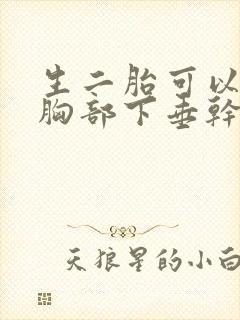 生二胎可以
胸部下垂幹
天狼星的小白